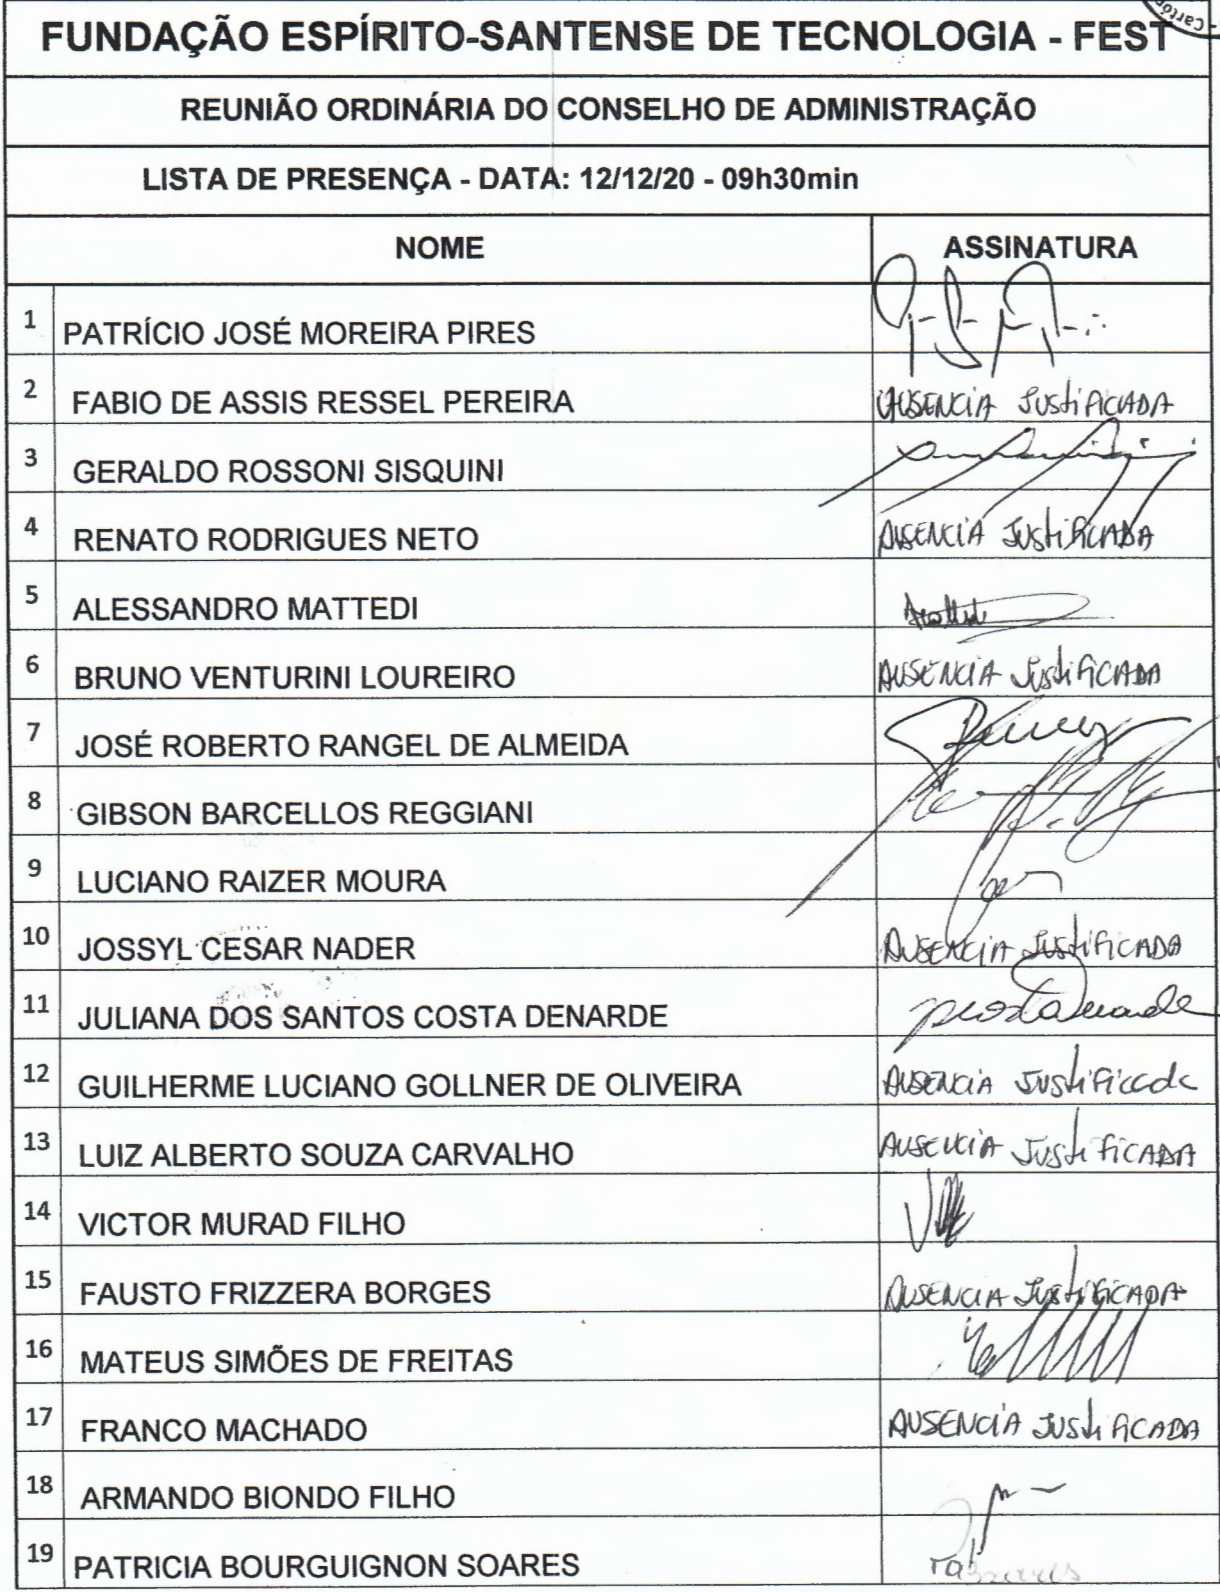 Cartó
FUNDAÇÃO ESPÍRITO-SANTENSE DE TECNOLOGIA - FEST
REUNIÃO ORDINÁRIA DO CONSELHO DE ADMINISTRAÇÃO
LISTA DE PRESENÇA - DATA: 12/12/20 - 09h30min
NOME ASSINATURA
1 PATRÍCIO JOSÉ MOREIRA PIRES
2 FABIO DE ASSIS RESSEL PEREIRA AUSENCIA JUSTIFICADA
3 GERALDO ROSSONI SISQUINI
4 RENATO RODRIGUES NETO AUSENCIA JUSTIFICADA
5 ALESSANDRO MATTEDI
6 BRUNO VENTURINI LOUREIRO AUSENCIA JUSTIFICADA
7 JOSÉ ROBERTO RANGEL DE ALMEIDA
8 GIBSON BARCELLOS REGGIANI
9 LUCIANO RAIZER MOURA
10 JOSSYL CESAR NADER AUSENCIA JUSTIFICADA
11 JULIANA DOS SANTOS COSTA DENARDE jcostaDenarde
12 GUILHERME LUCIANO GOLLNER DE OLIVEIRA AUSENCIA JUSTIFICADA
13 LUIZ ALBERTO SOUZA CARVALHO AUSENCIA JUSTIFICADA
14 VICTOR MURAD FILHO
15 FAUSTO FRIZZERA BORGES AUSENCIA JUSTIFICADA
16 MATEUS SIMÕES DE FREITAS
17 FRANCO MACHADO AUSENCIA JUSTIFICADA
18 ARMANDO BIONDO FILHO
19 PATRICIA BOURGUIGNON SOARES